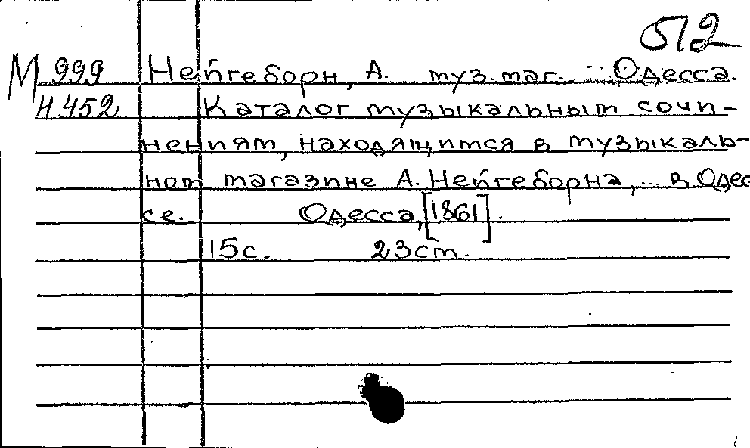 512
М 999 Нейгеборн, А. муз. маг. Одесса.
Н 452 Каталог музыкальным сочи-
нениям, находящимся в музыкаль-
ном магазине А. Нейгеборна, в Одес
се. Одесса, [1861].
15 с. 23 см.